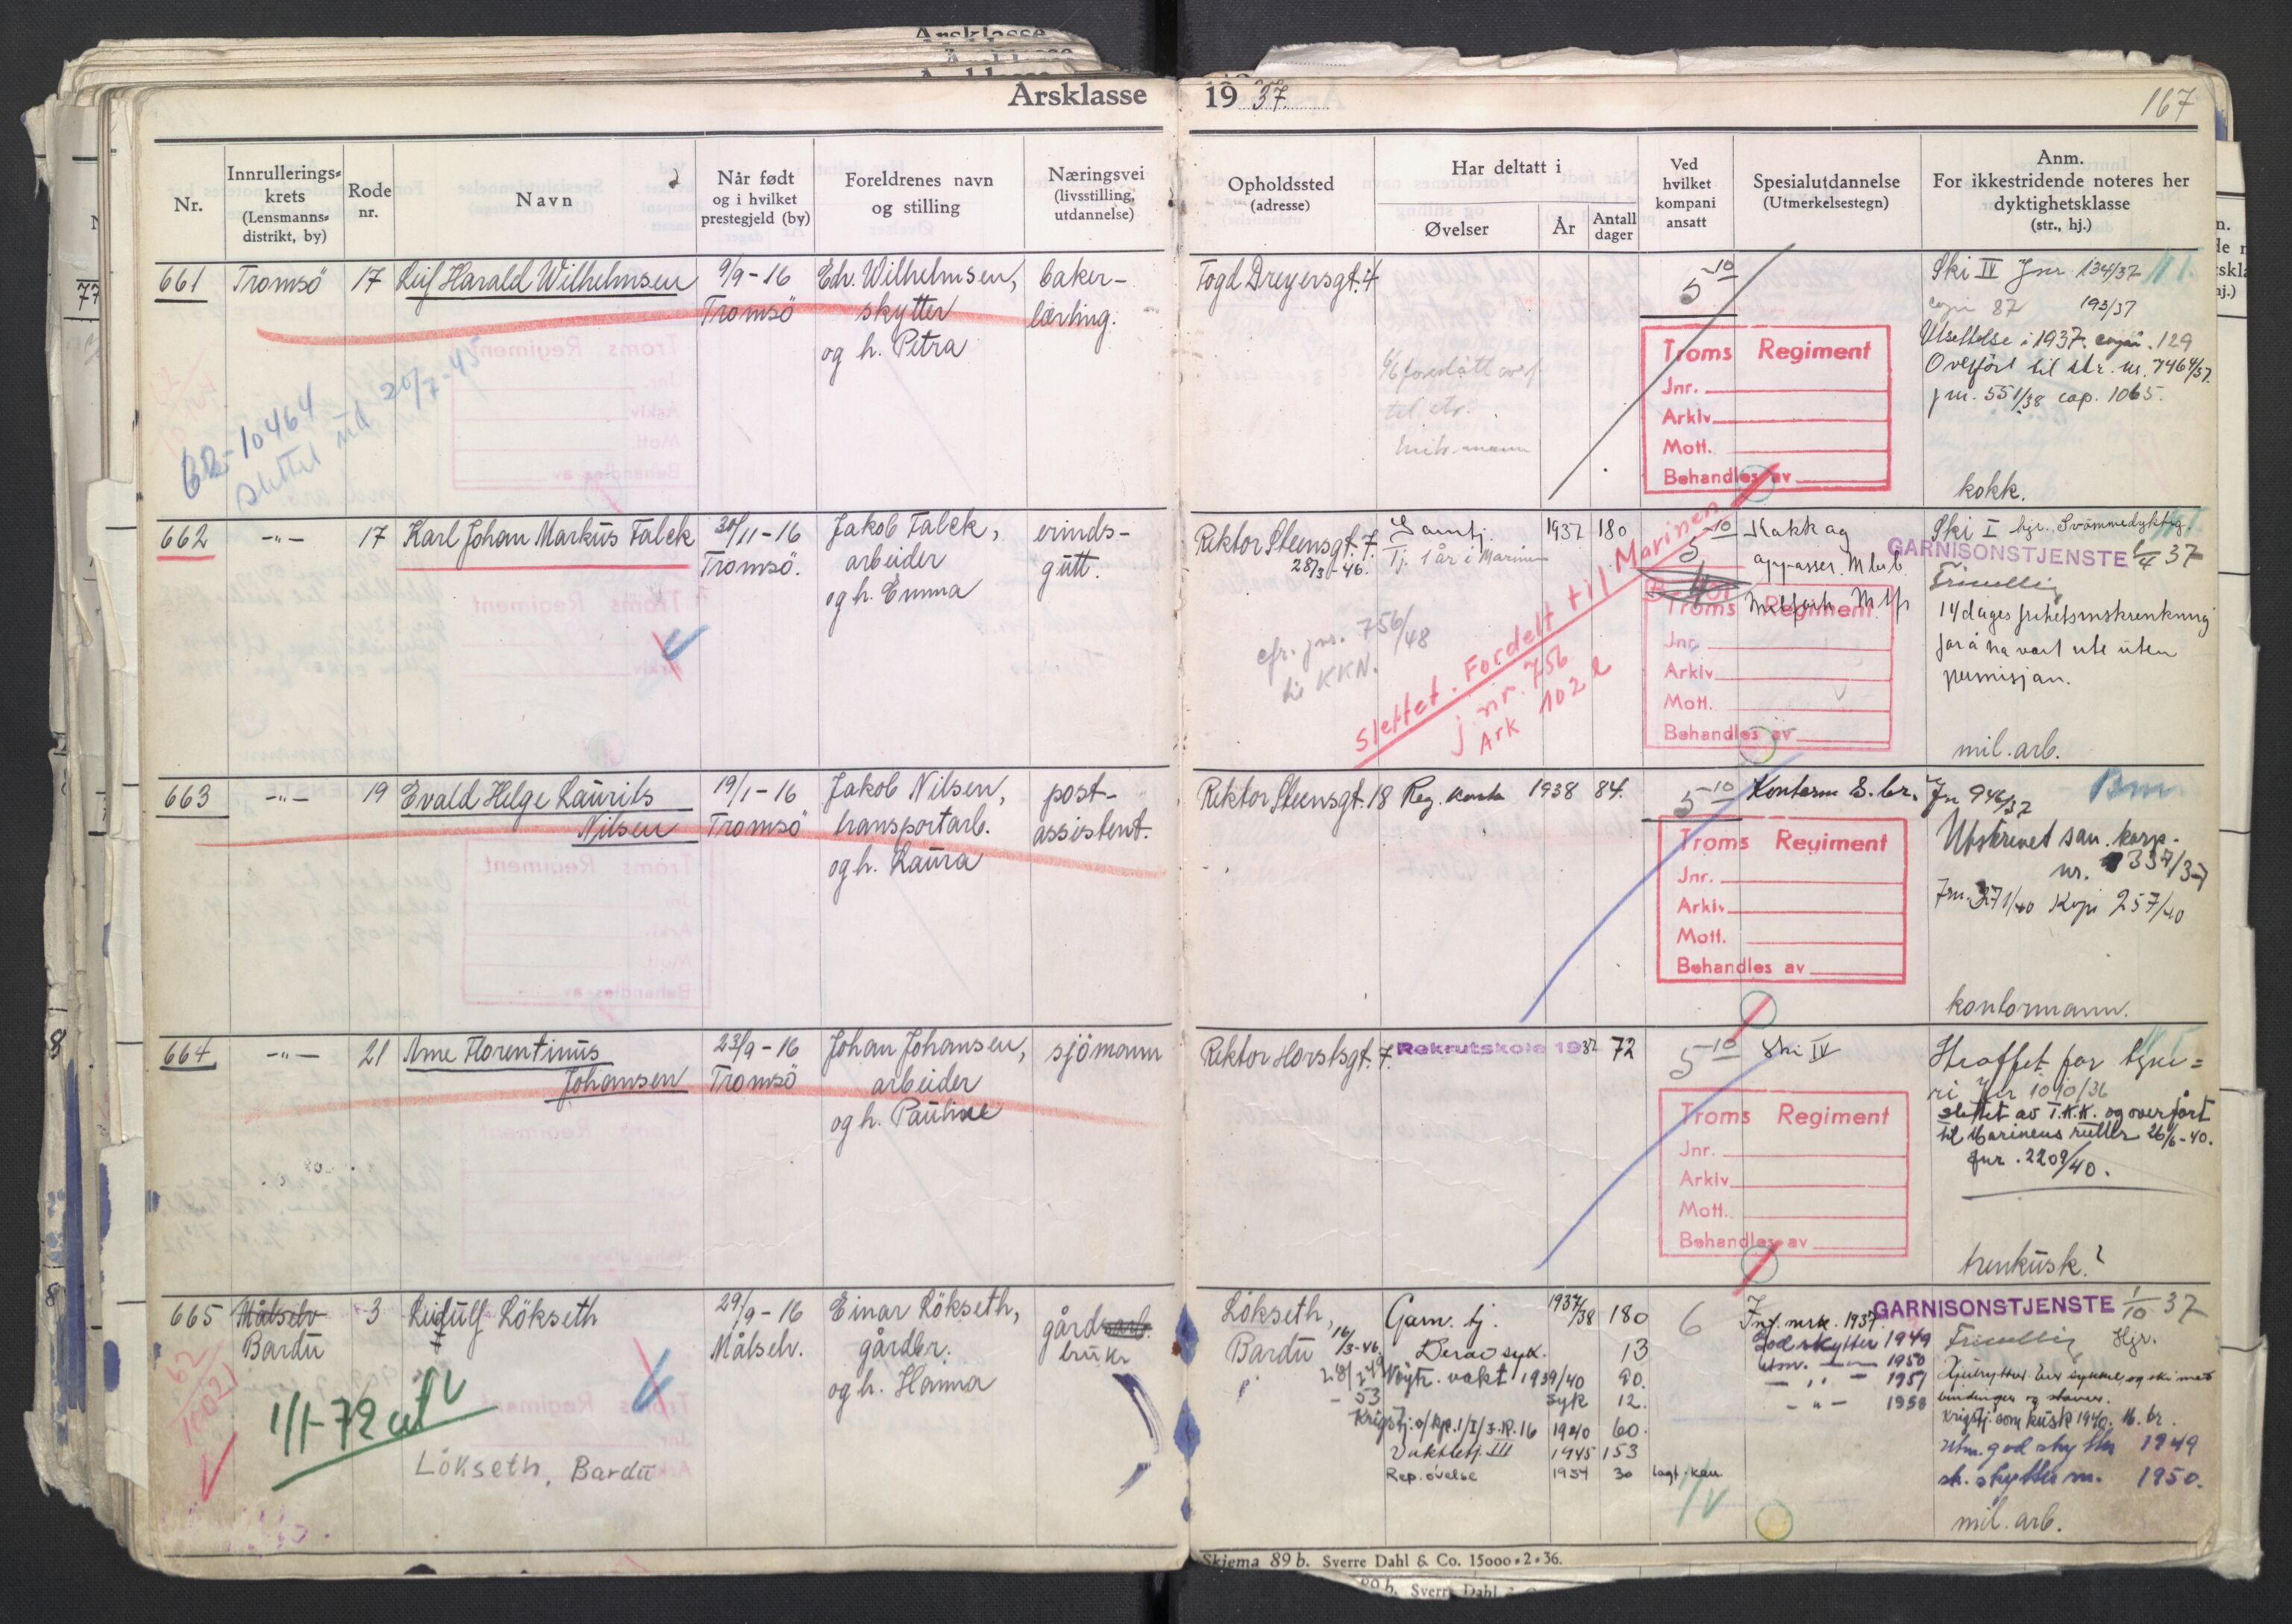 Årsklasse 1937. 167
Nr.
Innrullerings-
krets
(Lensmanns-
distrikt, by)
Rode
nr.
Navn
Når født
og i hvilket
prestegjeld (by)
Foreldrenes navn
og stilling
Næringsvei
(livsstilling,
utdannelse)
Opholdssted
(adresse)
Har deltatt i
Øvelser
År
Antall
dager
Ved
hvilket
kompani
ansatt
Spesialutdannelse
(Utmerkelsestegn)
Anm.
For ikkestridende noteres her
dyktighetsklasse
(str., hj.)
661 Tromsö 17 Leif Harald Wilhelmsen 9/9-16 Edv. Wilhelmsen, baker-
Tromsö skytter lærling.
og h. Petra
62-10464
slettet 20/7-45
Fogd Dreyersgt. 4 5 10 Ski IV Jnr 134/37
87 193/37
Utsettelse i 1937. 129
Overfört til str. nr. 746 4/37.
jnr. 551/38 cop. 1065.
til str.
Troms Regiment
Jnr.
Arkiv
Mott.
Behandles av
kokk.
662 -"- 17 Karl Johan Markus Falck 30/11-16 Jakob Falck, erinds-
Tromsö. arbeider gutt.
og h. Emma
Rektor Steensgt. 7. 1937 180 5 10 Ski I hjr. Svömmedyktig.
28/3-46. Tj. 1 år i Marinen
GARNISONSTJENESTE 1/4 37
Frivillig
14 dages frihetsinskrenkning
for å ha vært ute uten
permisjon.
cfr. jnr. 756/48
til KKN.
Slettet. Fordelt til Marinen
j. nr. 756
Ark 102
Troms Regiment
Jnr.
Arkiv
Mott.
Behandles av
mil. arb.
663 -"- 19 Evald Helge Laurits 19/1-16 Jakob Nilsen, post-
Nilsen Tromsö transportarb. assistent.
og h. Laura
Rektor Steensgt. 18 1938 84. 5 10 Jnr 946/37
Utskrevet san. korp.
nr. 337/37
Jnr. 371/40 Kopi 257/40
Troms Regiment
Jnr.
Arkiv
Mott.
Behandles av
kontormann.
664 -"- 21 Arne Florentinus 23/9-16 Johan Johansen, sjömann
Johansen Tromsö arbeider
og h. Pauline
Rektor Horstsgt. 7. Rekrutskole 1937 72 5 10 Ski IV Straffet for tyve=
ri Jnr 1010/36
slettet av T.K.K. og overfört
til Marinens ruller 26/6-40.
Jnr. 2209/40.
Troms Regiment
Jnr.
Arkiv
Mott.
Behandles av
trenkusk?
665 Målselv 3 Leidulf Lökseth 29/9-16 Einar Lökseth, gårdsarb.
Bardu Målselv. gårdbr. bruker
og h. Hanna
62
1/1-72
Lökseth, Bardu
Lökseth, Garn. tj. 1937/38 180 6 Inf. mrk. 1937 GARNISONSTJENESTE 1/10 37
Bardu 16/3-46 13 God skytter 1949 Frivillig Hjr.
Nøytr. vakt 1939/40 90. Utm. -"- 1950
-53 syk 12. -"- 1951
-"- 1953
Krigstj. o/kp. 1/I/I.R. 16 1940 60. Krigstj. som kusk 1940.
Vakttj. III 1945 153 Utm. god skytter 1949
Rep. øvelse 1954 30 1950.
mil. arb.
Skjema 89 b. Sverre Dahl & Co. 15000-2-36.